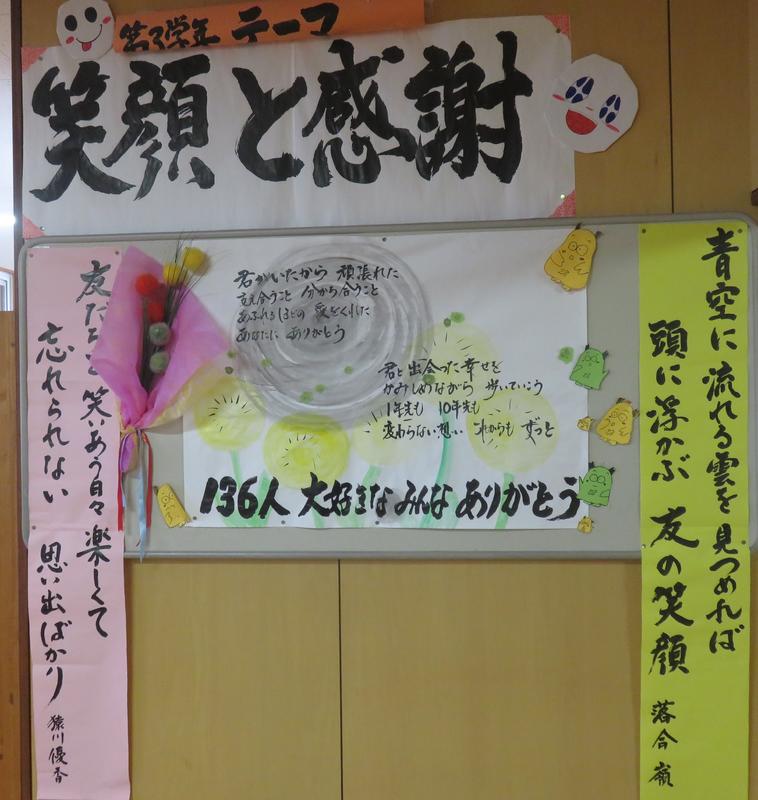 第3学年 テーマ
笑顔と感謝
青空に 流れる雲を 見つめれば
頭に浮かぶ 友の笑顔
落合 嶺
君がいたから 頑張れた
支え合うこと 分かち合うこと
あふれるほどの 愛をくれた
あなたに ありがとう
君と 出会った 幸せを
かみしめながら 歩いていこう
1年先も 10年先も
変わらない想い これからも ずっと
136人 大好きな みんな ありがとう
友だちと 笑いあう日々 楽しくて
忘れられない 思い出ばかり
猿川優香